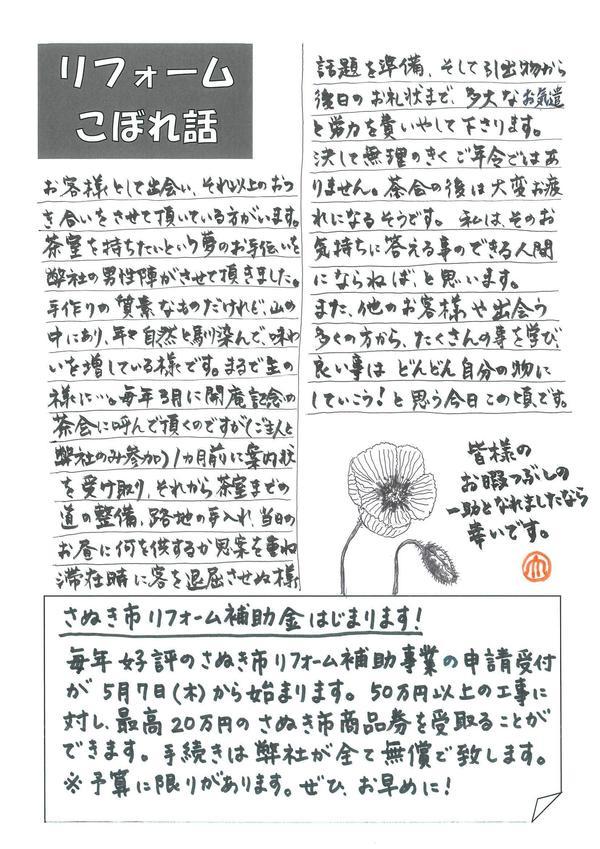 リフォーム
こぼれ話
お客様として出会い、それ以上のおつ
き合いをさせて頂いている方がいます。
茶室を持ちたいという夢のお手伝いを
弊社の男性陣がさせて頂きました。
手作りの質素なものだけれど、山の
中にあり、年々自然と馴り染んで、味わ
いを増している様です。まるで生の
様に…。毎年3月に開庵記念の
茶会に呼んで頂くのですが(ご主人と
弊社のみ参加)1ヵ月前に案内状
を受け取り、それから茶室までの
道の整備、路地の手入れ、当日の
お昼に何を供するか思案を重ね
滞在時に客を退屈させぬ様
話題を準備、そして引出物から
後日のお礼状まで、多大なお気遣
と労力を費いやして下さります。
決して無理のきくご年令ではあ
りません。茶会の後は大変お疲
れになるそうです。私は、そのお
気持ちに答える事のできる人間
にならねば、と思います。
また、他のお客様や出会う
多くの方から、たくさんの事を学び、
良い事はどんどん自分の物に
していこう!と思う今日この頃です。
皆様の
お暇つぶしの
一助となれましたなら
幸いです。
さぬき市リフォーム補助金はじまります!
毎年好評のさぬき市リフォーム補助事業の申請受付
が5月7日(木)から始まります。50万円以上の工事に
対し、最高20万円のさぬき市商品券を受取ることが
できます。手続きは弊社が全て無償で致します。
※予算に限りがあります。ぜひ、お早めに!